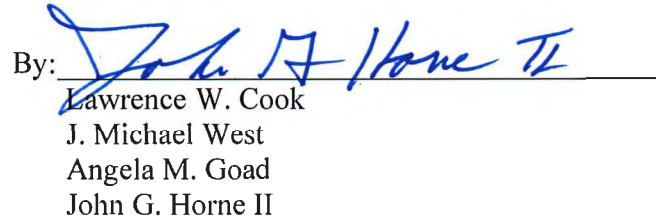 By: John G Horne II
Lawrence W. Cook
J. Michael West
Angela M. Goad
John G. Horne II